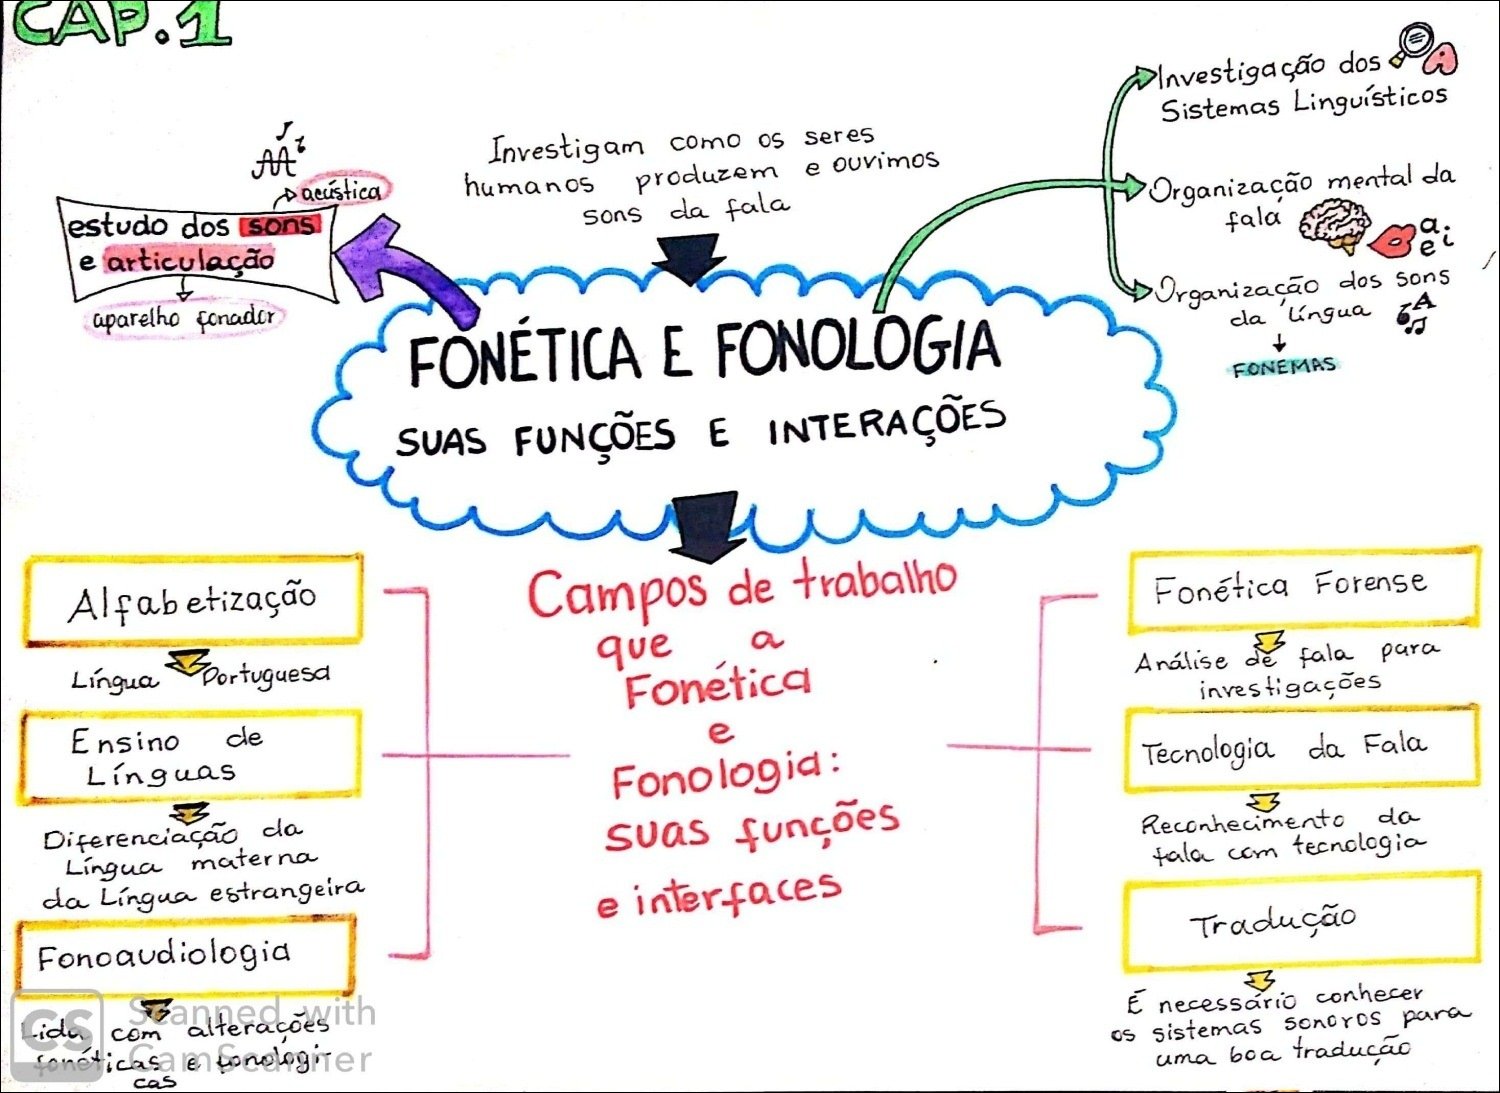 CAP.1
Investigam como os seres
humanos produzem e ouvimos
sons da fala
acústica
estudo dos sons
e articulação
aparelho fonador
Investigação dos
Sistemas Linguísticos
Organização mental da
fala
a
e i
Organização dos sons
da língua
A
FONEMAS
FONÉTICA E FONOLOGIA
SUAS FUNÇÕES E INTERAÇÕES
Campos de trabalho
que a
Fonética
e
Fonologia:
suas funções
e interfaces
Alfabetização
Língua Portuguesa
Ensino de
Línguas
Diferenciação da
Língua materna
da Língua estrangeira
Fonoaudiologia
Lida com alterações
fonéticas e fonológi-
cas
Fonética Forense
Análise de fala para
investigações
Tecnologia da Fala
Reconhecimento da
fala com tecnologia
Tradução
É necessário conhecer
os sistemas sonoros para
uma boa tradução
CS
Scanned with
CamScanner